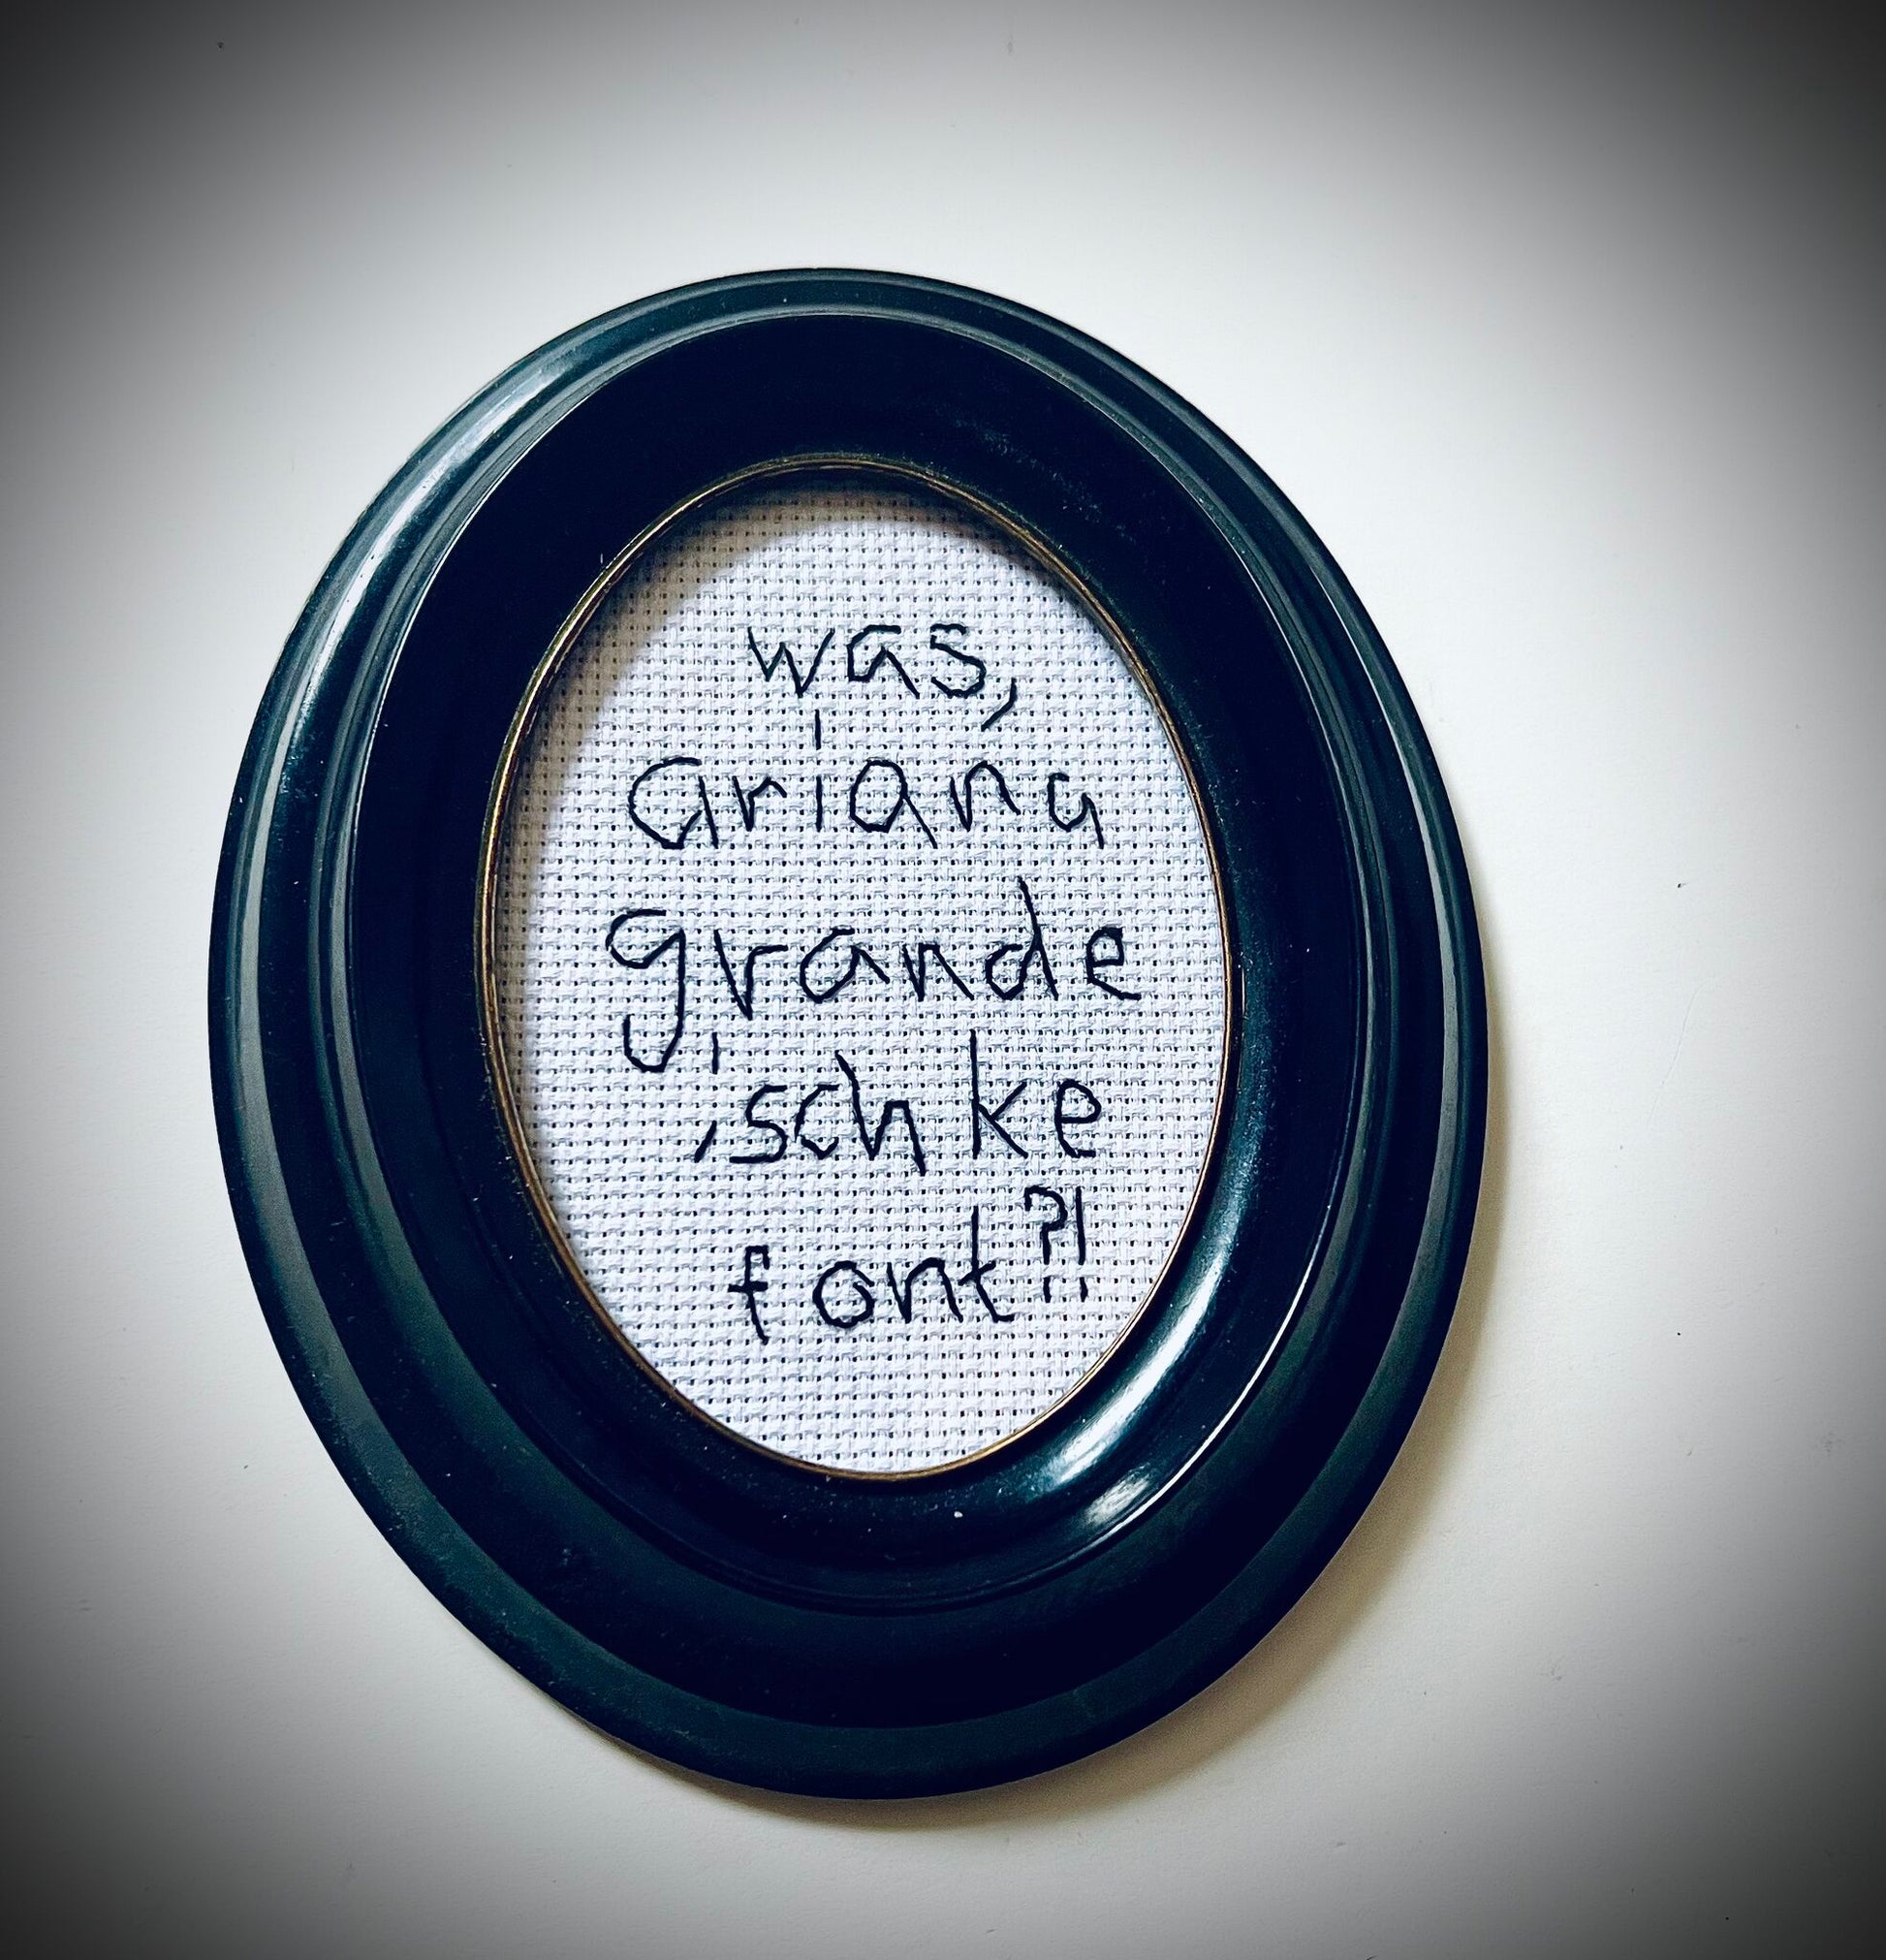 was,
ariana
grande
ischke
font?!